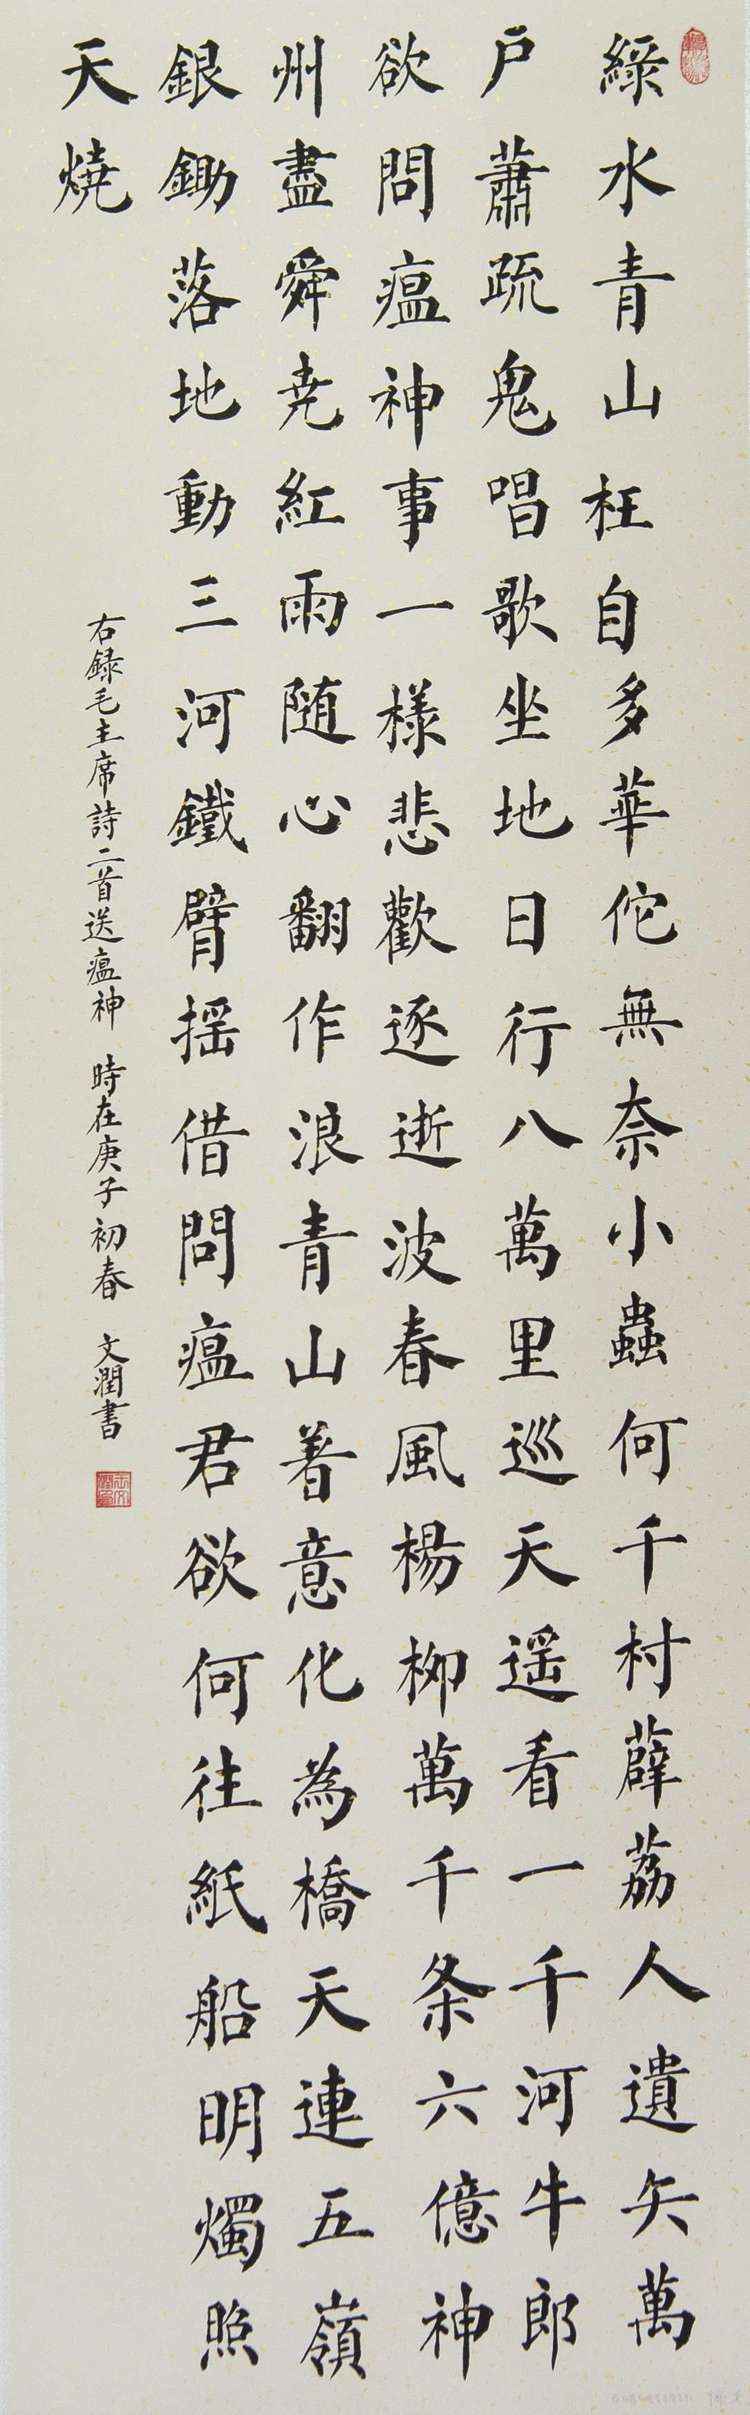 綠水青山枉自多華佗無奈小蟲何千村薜荔人遺矢萬
戶蕭疏鬼唱歌坐地日行八萬里巡天遥看一千河牛郎
欲問瘟神事一樣悲歡逐逝波春風楊柳萬千条六億神
州盡舜尭紅雨随心翻作浪青山着意化為橋天連五嶺
銀鋤落地動三河鐵臂揺借問瘟君欲何往紙船明燭照
天燒
右録毛主席詩二首送瘟神 時在庚子初春 文潤書